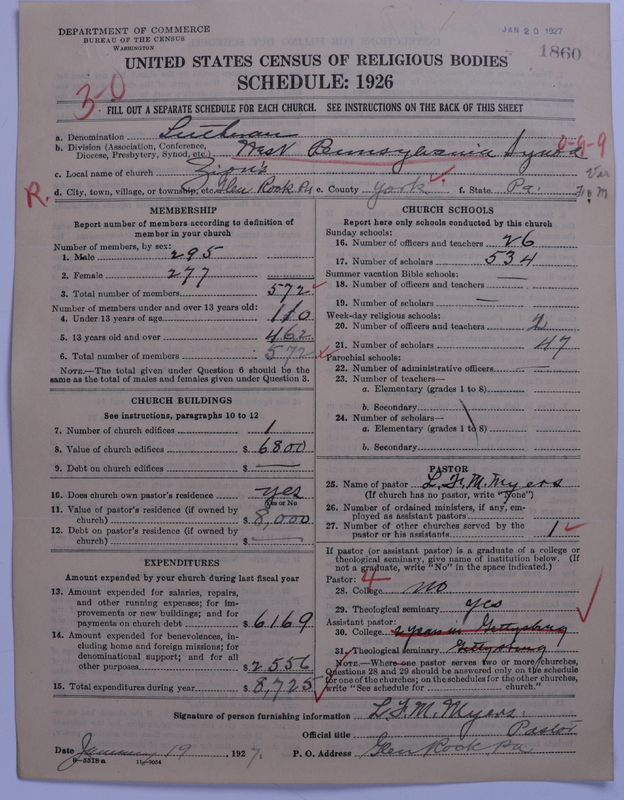 DEPARTMENT OF COMMERCE
BUREAU OF THE CENSUS
WASHINGTON
JAN 20 1927
1860
UNITED STATES CENSUS OF RELIGIOUS BODIES
SCHEDULE: 1926
30
FILL OUT A SEPARATE SCHEDULE FOR EACH CHURCH. SEE INSTRUCTIONS ON THE BACK OF THIS SHEET
a. Denomination Lutheran
b. Division (Association, Conference, Diocese, Presbytery, Synod, etc.) West Pennsylvania Synod 0-9-9
c. Local name of church Zion's
R. d. City, town, village, or township, etc. Glen Rock Pa e. County York f. State Pa.
MEMBERSHIP
Report number of members according to definition of
member in your church
Number of members, by sex:
1. Male 295
2. Female 277
3. Total number of members 572
Number of members under and over 13 years old:
4. Under 13 years of age 110
5. 13 years old and over 462
6. Total number of members 572
NOTE.—The total given under Question 6 should be the
same as the total of males and females given under Question 3.
CHURCH BUILDINGS
See instructions, paragraphs 10 to 12
7. Number of church edifices 1
8. Value of church edifices $ 6800
9. Debt on church edifices $
10. Does church own pastor's residence yes
Yes or No
11. Value of pastor's residence (if owned by
church) $ 8,000
12. Debt on pastor's residence (if owned by
church) $
EXPENDITURES
Amount expended by your church during last fiscal year
13. Amount expended for salaries, repairs,
and other running expenses; for im-
provements or new buildings; and for
payments on church debt $ 6169
14. Amount expended for benevolences, in-
cluding home and foreign missions; for
denominational support; and for all
other purposes $ 2556
15. Total expenditures during year $ 8,725
CHURCH SCHOOLS
Report here only schools conducted by this church
Sunday schools:
16. Number of officers and teachers 26
17. Number of scholars 534
Summer vacation Bible schools:
18. Number of officers and teachers
19. Number of scholars —
Week-day religious schools:
20. Number of officers and teachers 2
21. Number of scholars 47
Parochial schools:
22. Number of administrative officers
23. Number of teachers—
a. Elementary (grades 1 to 8)
b. Secondary
24. Number of scholars—
a. Elementary (grades 1 to 8)
b. Secondary
PASTOR
25. Name of pastor L. F. M. Myers
(If church has no pastor, write "None")
26. Number of ordained ministers, if any, em-
ployed as assistant pastors
27. Number of other churches served by the
pastor or his assistants 1
If pastor (or assistant pastor) is a graduate of a college or
theological seminary, give name of institution below. (If
not a graduate, write "No" in the space indicated.)
Pastor: 4
28. College No
29. Theological seminary yes
Assistant pastor:
30. College 2 years in Gettysburg
31. Theological seminary Gettysburg
NOTE.—Where one pastor serves two or more churches,
Questions 28 and 29 should be answered only on the schedule
for one of the churches; on the schedules for the other churches,
write "See schedule for ............ church."
Signature of person furnishing information L. F. M. Myers
Official title Pastor
Date January 19, 1927. P. O. Address Glen Rock Pa